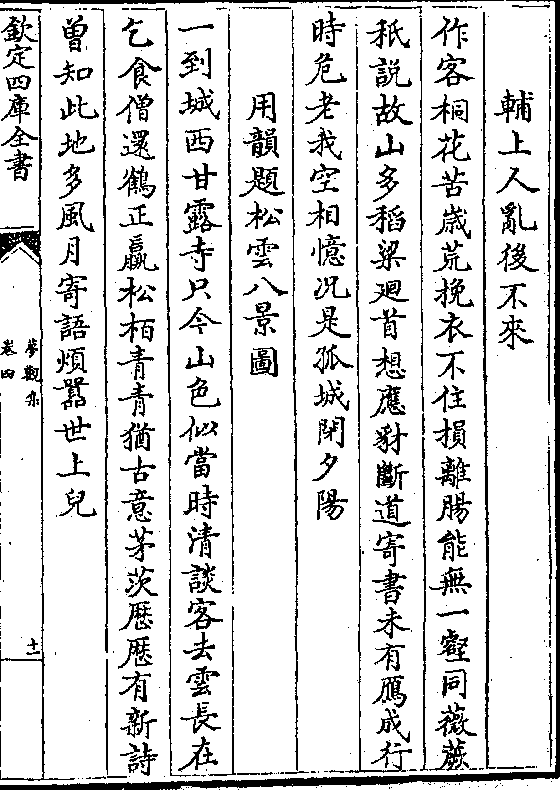 輔上人亂後不來
作客桐花苦歲荒挽衣不住損離腸能無一壑同薇蕨
秖説故山多稻粱廻首想應豺斷道寄書未有鴈成行
時危老我空相憶况是孤城閉夕陽
用韻題松雲八景圖
一到城西甘露寺只今山色似當時清談客去雲長在
乞食僧還鶴正羸松栢青青猶古意茅茨歴歴有新詩
曾知此地多風月寄語煩囂世上兒
欽定四庫全書
夢觀集
卷四
十一